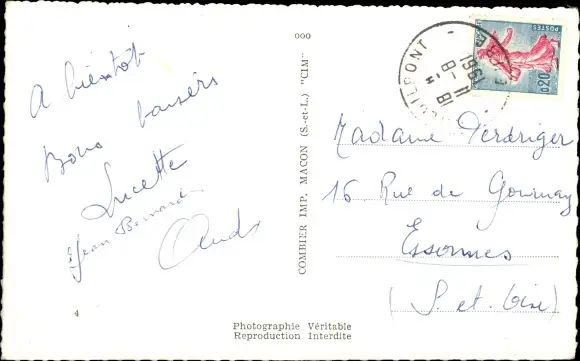 A bientôt
Bons baisers
Lucette
Jean Bernard
000
COMBIER IMP. MACON (S.-et-L.) "CIM"
POSTES
0,20
18 H
8 - 3
1961
Madame
16 Rue de Gournay
Essonnes
(S. et Oise)
4
Photographie Véritable
Reproduction Interdite